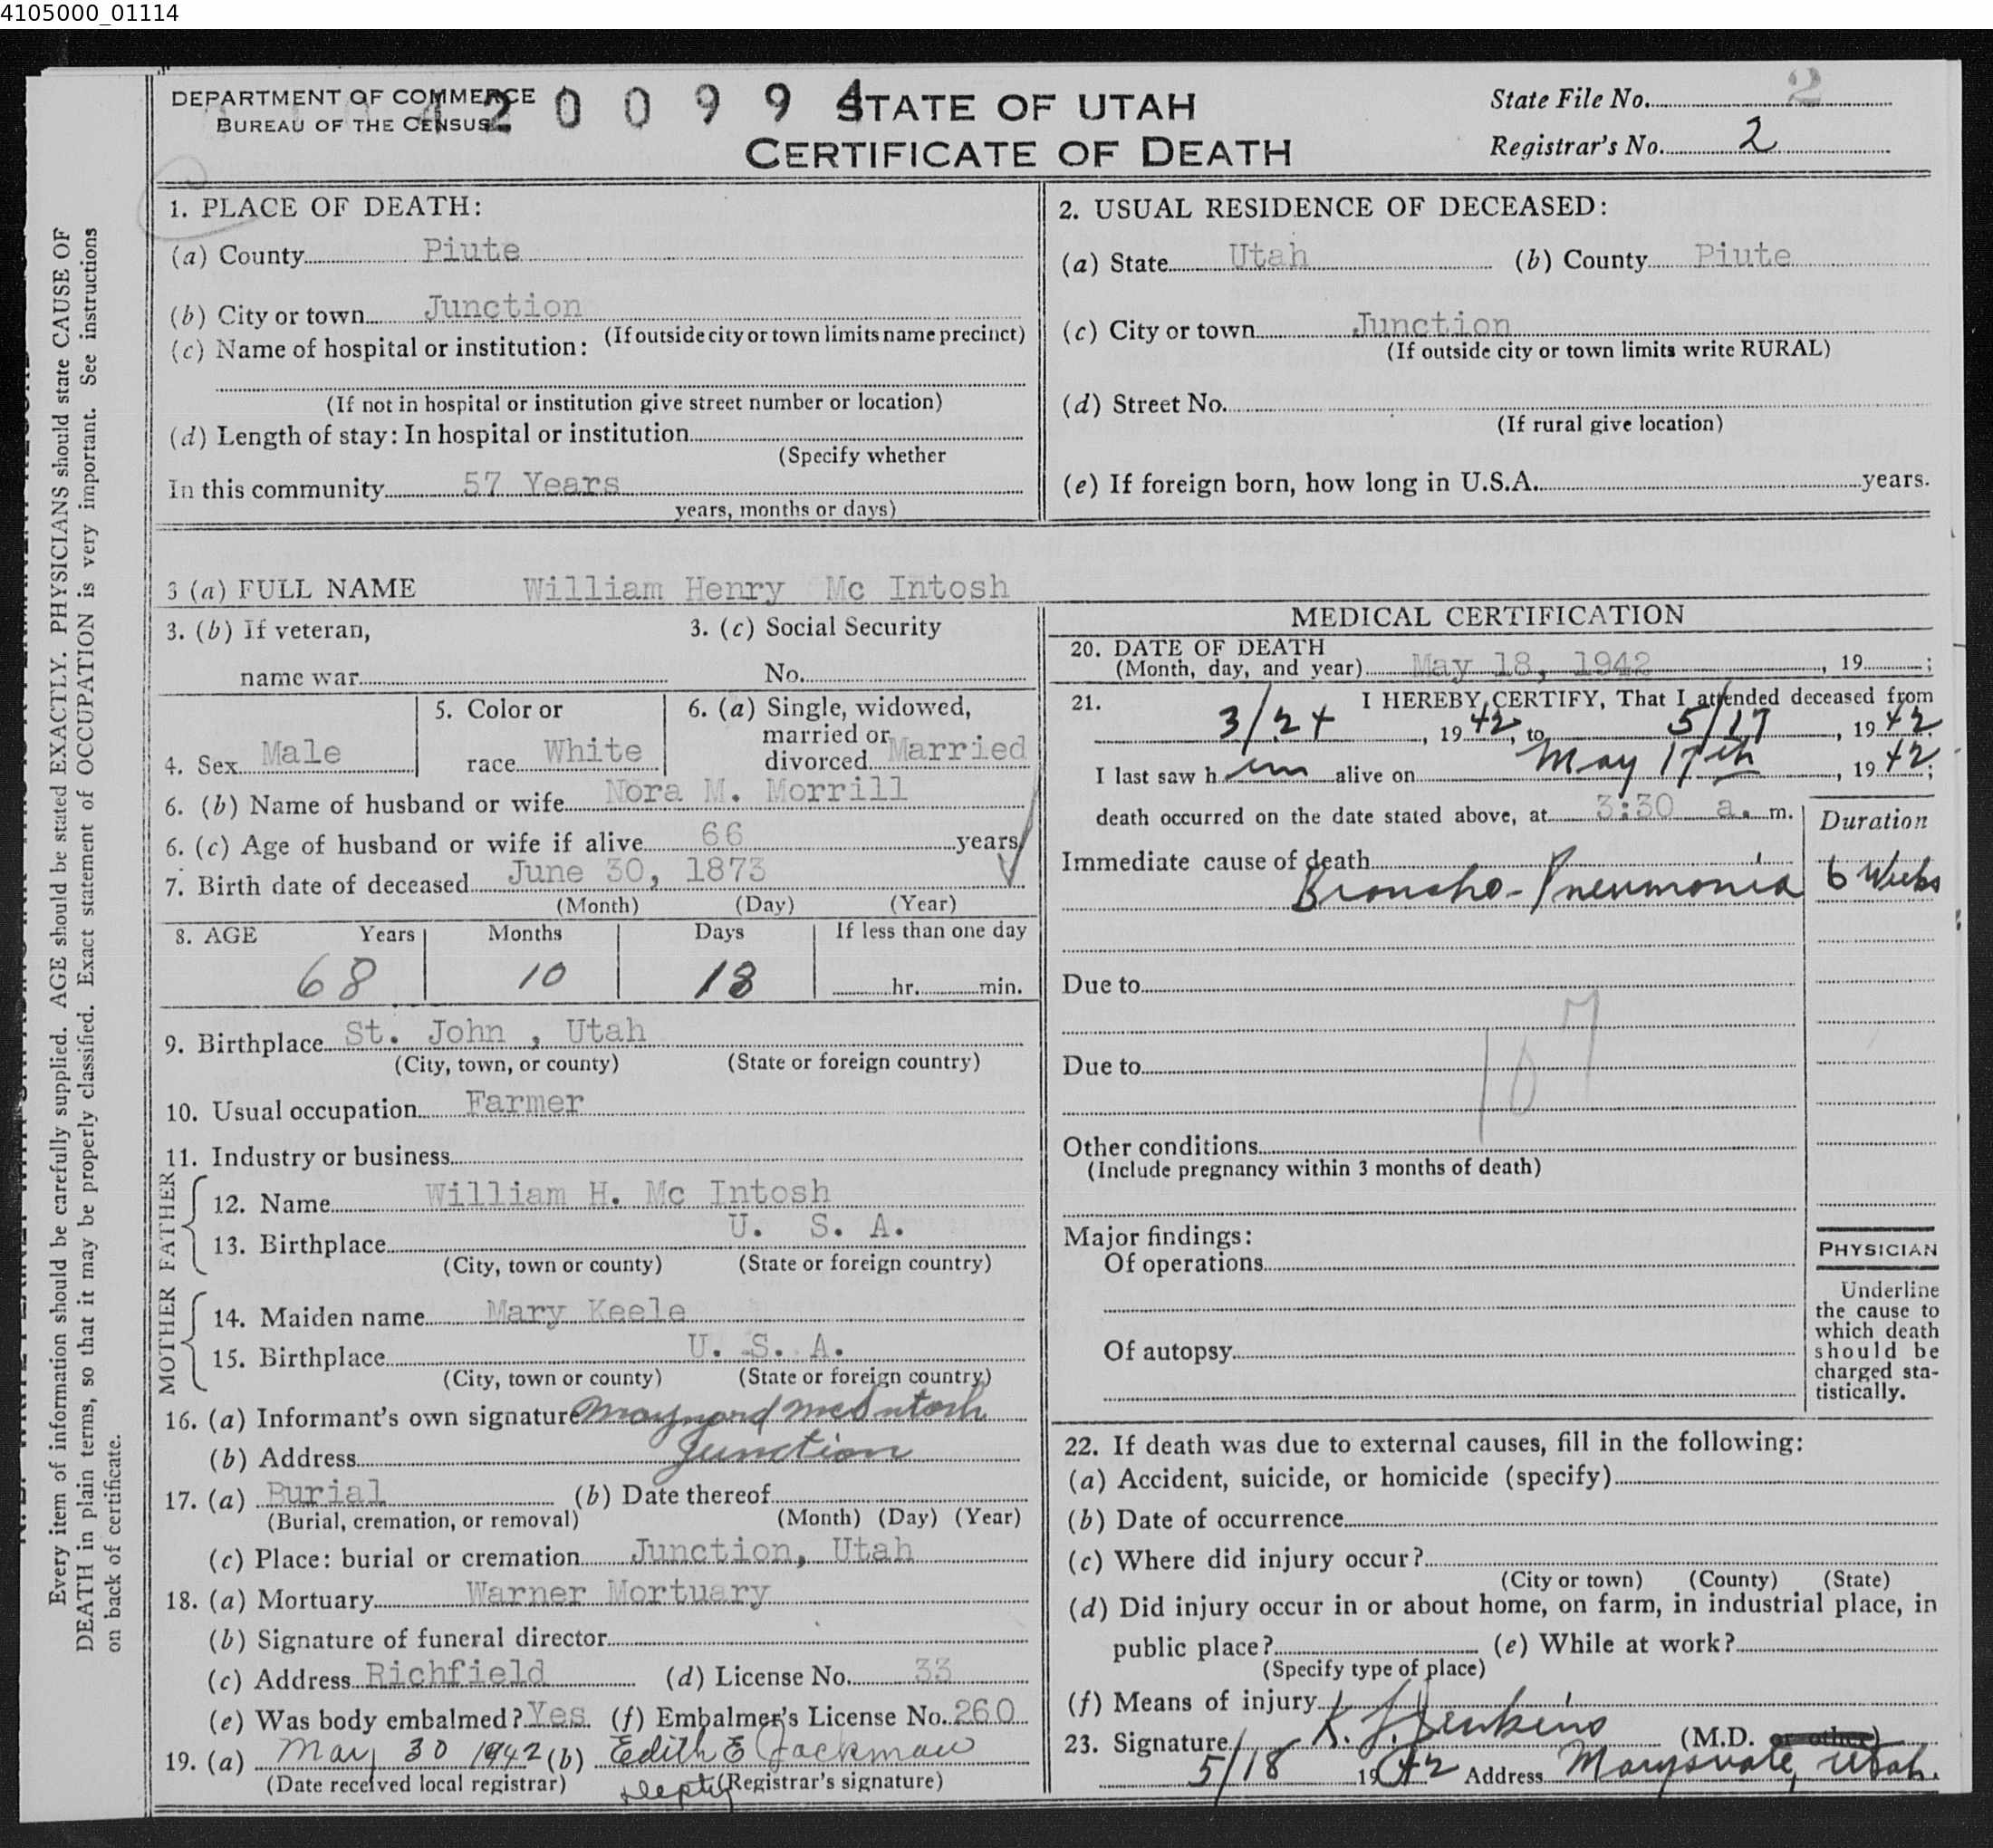 4105000_01114
DEPARTMENT OF COMMERCE
BUREAU OF THE CENSUS
4 2 0 0 9 9 4
STATE OF UTAH
CERTIFICATE OF DEATH
State File No. 2
Registrar's No. 2
Every item of information should be carefully supplied. AGE should be stated EXACTLY. PHYSICIANS should state CAUSE OF
DEATH in plain terms, so that it may be properly classified. Exact statement of OCCUPATION is very important. See instructions
on back of certificate.
1. PLACE OF DEATH:
(a) County Piute
(b) City or town Junction
(If outside city or town limits name precinct)
(c) Name of hospital or institution:
(If not in hospital or institution give street number or location)
(d) Length of stay: In hospital or institution
(Specify whether
In this community 57 Years
years, months or days)
2. USUAL RESIDENCE OF DECEASED:
(a) State Utah (b) County Piute
(c) City or town Junction
(If outside city or town limits write RURAL)
(d) Street No.
(If rural give location)
(e) If foreign born, how long in U.S.A. years.
3 (a) FULL NAME William Henry Mc Intosh
3. (b) If veteran,
name war
3. (c) Social Security
No.
4. Sex Male
5. Color or
race White
6. (a) Single, widowed,
married or
divorced Married
6. (b) Name of husband or wife Nora M. Morrill
6. (c) Age of husband or wife if alive 66 years
7. Birth date of deceased June 30, 1873
(Month) (Day) (Year)
8. AGE Years Months Days If less than one day
68 10 18 hr. min.
9. Birthplace St. John , Utah
(City, town, or county) (State or foreign country)
10. Usual occupation Farmer
11. Industry or business
FATHER
12. Name William H. Mc Intosh
13. Birthplace U. S. A.
(City, town or county) (State or foreign country)
MOTHER
14. Maiden name Mary Keele
15. Birthplace U. S. A.
(City, town or county) (State or foreign country)
16. (a) Informant's own signature Maynard McIntosh
(b) Address Junction
17. (a) Burial (b) Date thereof
(Burial, cremation, or removal) (Month) (Day) (Year)
(c) Place: burial or cremation Junction, Utah
18. (a) Mortuary Warner Mortuary
(b) Signature of funeral director
(c) Address Richfield (d) License No. 33
(e) Was body embalmed? Yes (f) Embalmer's License No. 260
19. (a) May 30 1942 (b) Edith E Jackman
(Date received local registrar) Depty (Registrar's signature)
MEDICAL CERTIFICATION
20. DATE OF DEATH
(Month, day, and year) May 18, 1942, 19 ;
21. I HEREBY CERTIFY, That I attended deceased from
3/24, 1942, to 5/17, 1942
I last saw him alive on May 17th, 1942;
death occurred on the date stated above, at 3:30 a. m.
Duration
Immediate cause of death
Broncho-Pneumonia 6 Weeks
Due to
107
Due to
Other conditions
(Include pregnancy within 3 months of death)
Major findings:
Of operations
Of autopsy
PHYSICIAN
Underline
the cause to
which death
should be
charged sta-
tistically.
22. If death was due to external causes, fill in the following:
(a) Accident, suicide, or homicide (specify)
(b) Date of occurrence
(c) Where did injury occur?
(City or town) (County) (State)
(d) Did injury occur in or about home, on farm, in industrial place, in
public place? (e) While at work?
(Specify type of place)
(f) Means of injury
23. Signature K. J. Jenkins (M.D. or other)
5/18 1942 Address Marysvale, Utah.